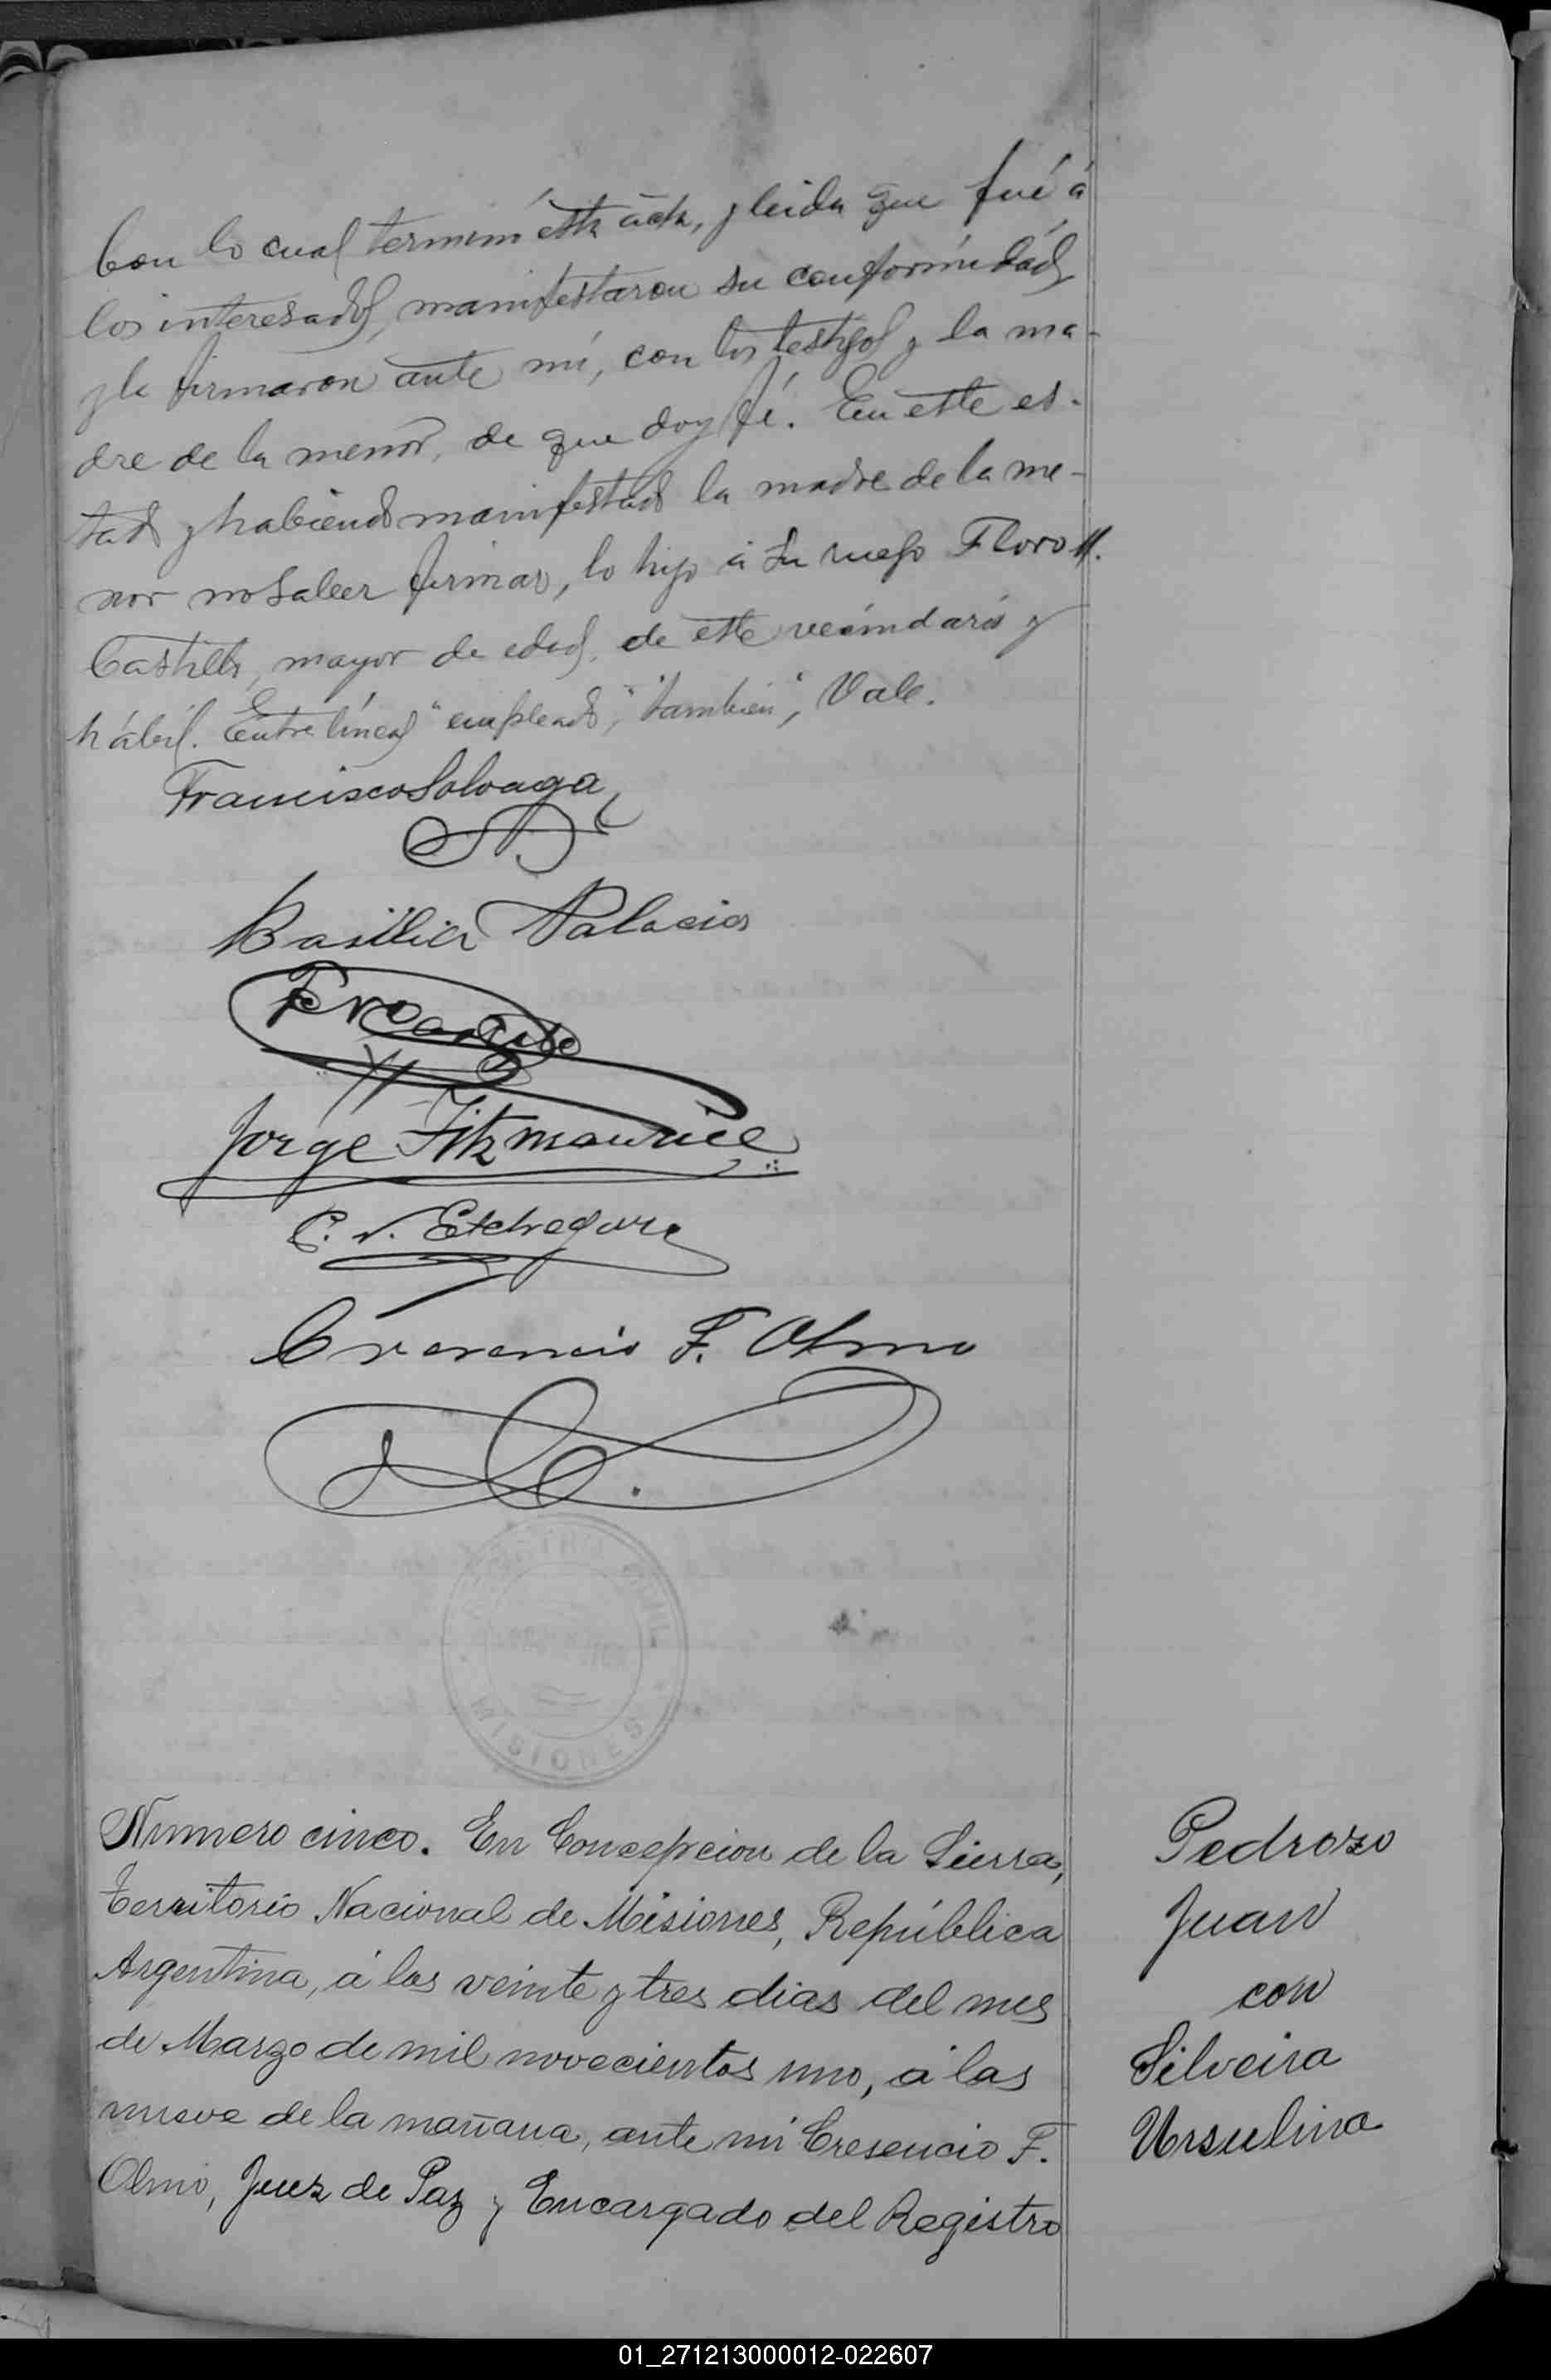 Con lo cual terminó ésta ácta, y leida que fué á
los interesados, manifestaron su conformidad,
y la firmaron ante mí, con los testigos y la ma-
dre de la menor, de que doy fé. En este es-
tado y habiendo manifestado la madre de la me-
nor no saber firmar, lo hizo á su ruego Floro M.
Castillo, mayor de edad, de este vecindario y
hábil. Entre líneas "empleado", "también", Vale.
Francisco Solvaga
Basilia Palacios
Jorge Fitzmaurice
Etchegure
Cresencio F. Olmo
REGISTRO CIVIL
MISIONES
Numero cinco. En Concepcion de la Sierra,
Territorio Nacional de Misiones, República
Argentina, á los veinte y tres dias del mes
de Marzo de mil novecientos uno, á las
nueve de la mañana, ante mi Cresencio F.
Olmo, Juez de Paz y Encargado del Registro
Pedrozo
Juan
con
Silveira
Ursulina
01_271213000012-022607